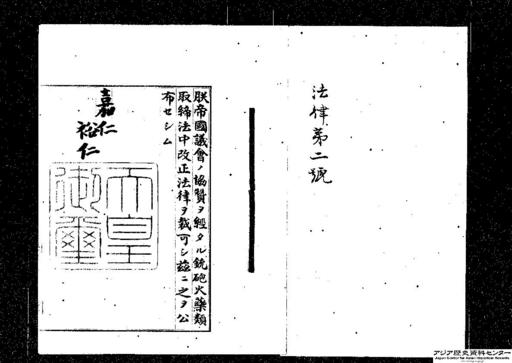 法律第二號
朕帝國議會ノ協賛ヲ經タル銃砲火藥類
取締法中改正法律ヲ裁可シ茲ニ之ヲ公
布セシム
嘉仁
裕仁
天皇
御璽
アジア歴史資料センター
Japan Center for Asian Historical Records